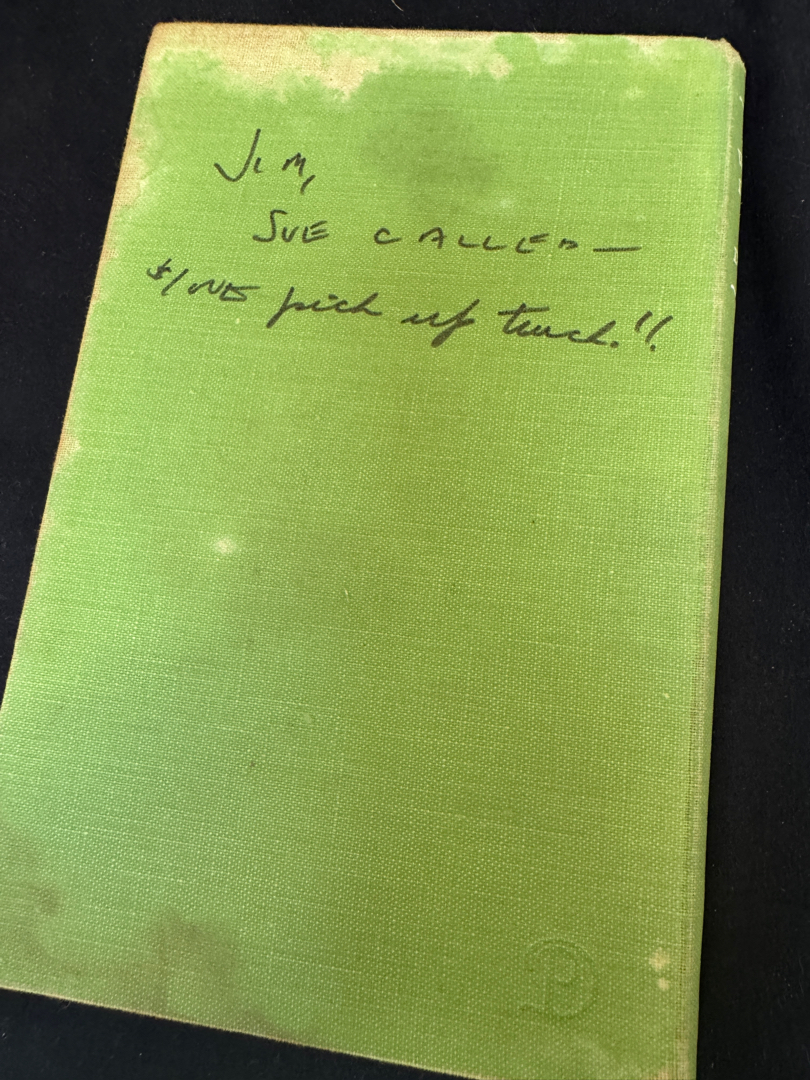 JIM,
SUE CALLED—
pick up truck!!